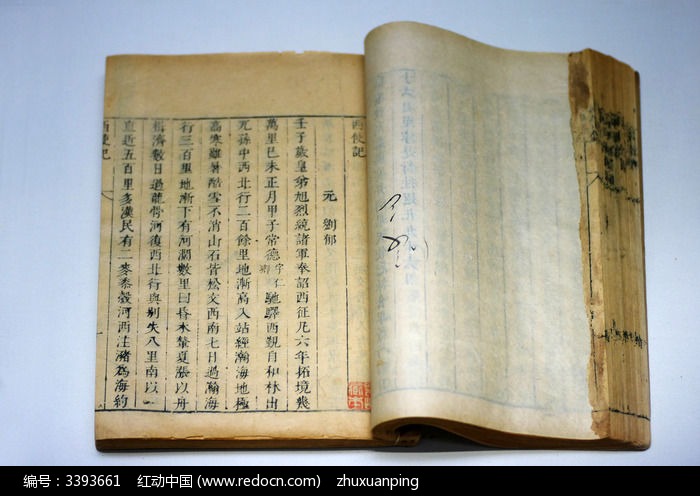 西使記
元 劉郁
壬子歲皇弟旭烈統諸軍奉詔西征凡六年拓境幾
萬里已未正月甲子常德字仁馳驛西覲自和林出
兀孫中西北行二百餘里地漸高入站經瀚海地極
高寒雖暑酷雪不消山石皆松文西南七日過瀚海
行三百里地漸下有河濶數里曰昏木輦夏漲以舟
楫濟數日過龍骨河復西北行與别失八里南以
直近五百里多漢民有二麥黍穀河西注瀦為海約
西使記
编号：3393661 红动中国 (www.redocn.com) zhuxuanping